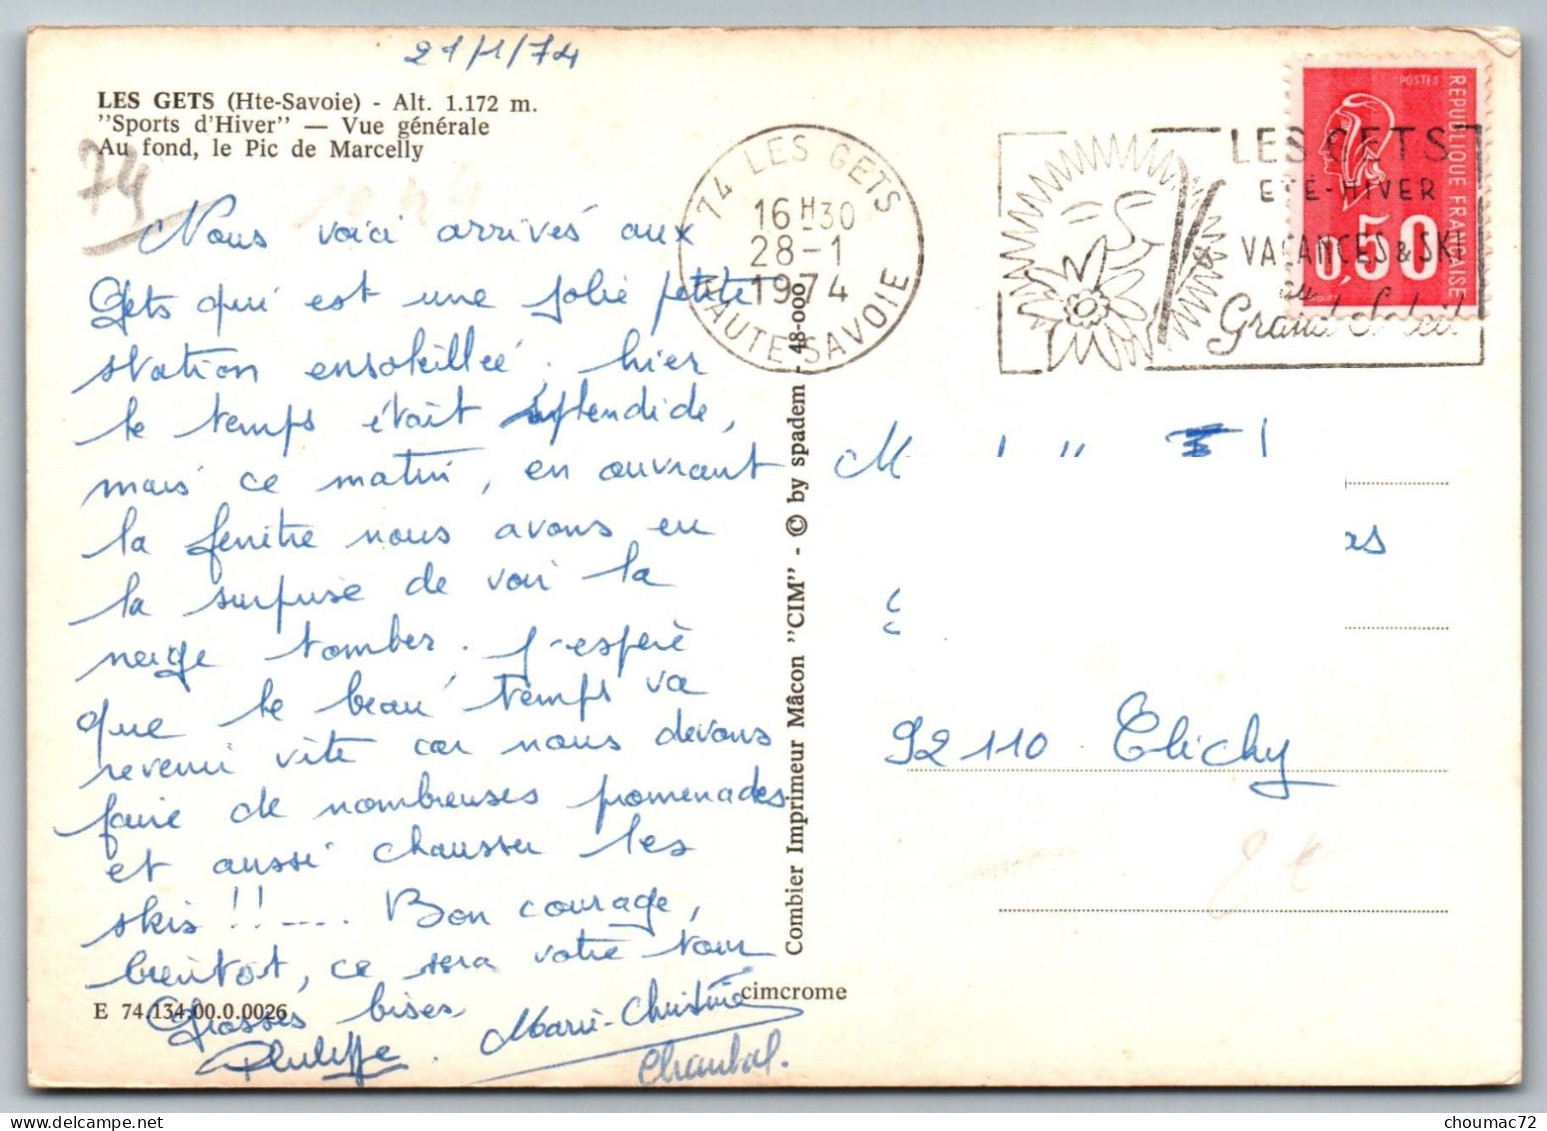 21/1/74
LES GETS (Hte-Savoie) - Alt. 1.172 m.
"Sports d'Hiver" — Vue générale
Au fond, le Pic de Marcelly
74
Nous voici arrivés aux
Gets qui est une jolie petite
station ensoleillée. hier
le temps était splendide,
mais ce matin, en ouvrant
la fenêtre nous avons eu
la surprise de voir la
neige tomber. J'espère
que le beau temps va
revenir vite car nous devons
faire de nombreuses promenades
et aussi chausser les
skis !! .... Bon courage,
bientôt, ce sera votre tour
Grosses bises
Philippe. Marie-Christine
Chantal.
E 74.134.00.0.0026
cimcrome
Combier Imprimeur Mâcon "CIM" - © by spadem - 48-000
74 LES GETS
16 H 30
28-1
1974
HAUTE-SAVOIE
LES GETS
ETE-HIVER
VACANCES & SKI
au
Grand Soleil
POSTES
REPUBLIQUE FRANCAISE
0,50
92110 Clichy
choumac72